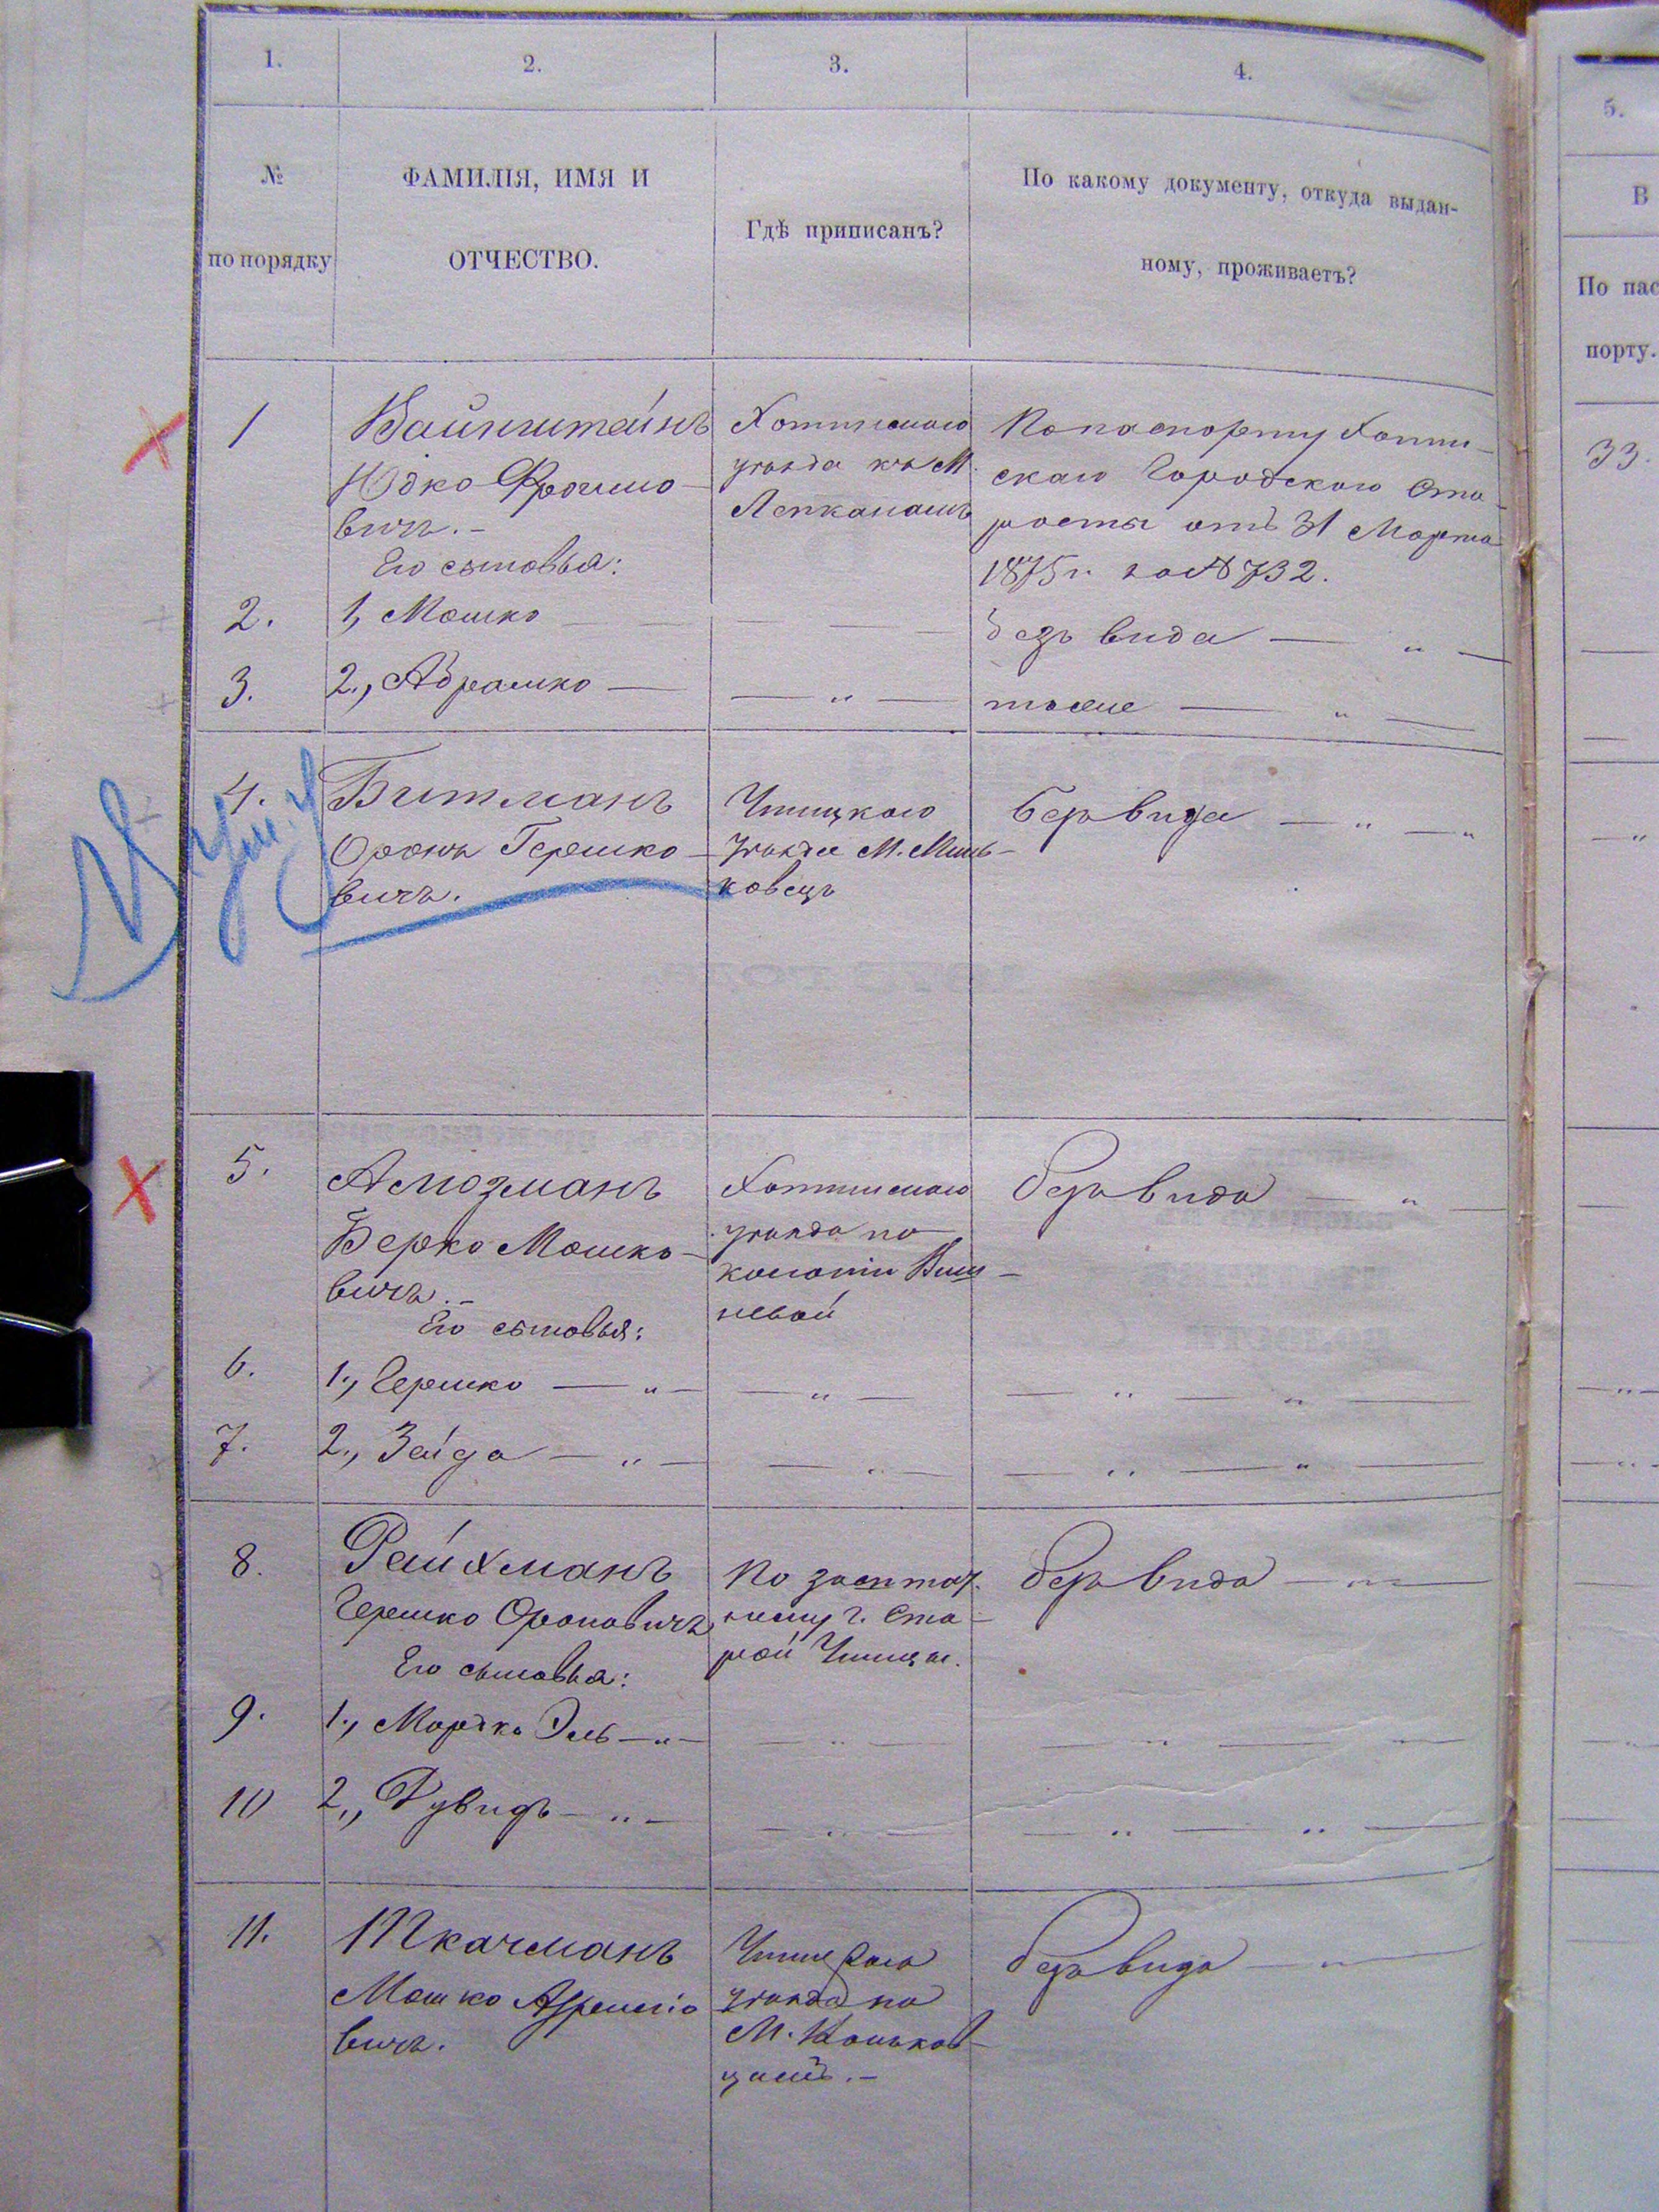 1.
2.
3.
4.
5.
№
по порядку
ФАМИЛІЯ, ИМЯ И
ОТЧЕСТВО.
Гдѣ приписанъ?
По какому документу, откуда выдан-
ному, проживаетъ?
В
По пас
порту.
1
Вайнштейнъ
Юдко Фроимо-
вичъ.-
Его сыновья:
Хотинскаго
уѣзда къ М.
Липканамъ
По паспорту Хотин-
скаго Городского Ста-
росты отъ 31 Марта
1875 г. за № 732.
33.
2.
1, Мошко — — —
безъ вида — " —
3.
2., Абрамко —
— " —
тоже — " —
4.
Битманъ
Оронъ Гершко-
вичъ.
Ушицкаго
уѣзда М. Минь-
ковецъ
безъ вида — " — "
5.
Алюзманъ
Берко Мошко-
вичъ.-
Его сыновья:
Хотинскаго
уѣзда по
колоніи Виш-
невой
безъ вида — " —
6.
1., Гершко — " —
— " —
— " — " —
7.
2., Зейда — " —
— " —
— " — " —
8.
Райхманъ
Гершко Ороновичъ
Его сыновья:
По заштат-
ному г. Ста-
рой Ушицы.
безъ вида — " —
9.
1., Мордко Эль — " —
— " —
— " — —
10
2., Рувидъ — " —
— " —
— " — " —
11.
Ткачманъ
Мошко
вичъ.
Ушицкаго
уѣзда по
М.
цамъ.-
безъ вида — " —